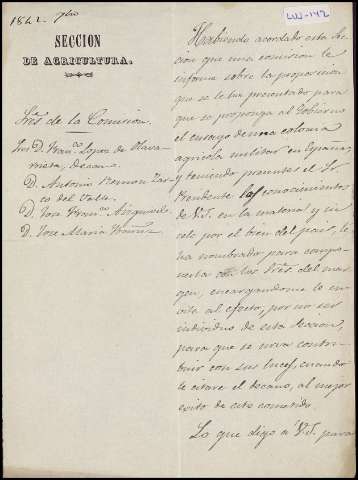 1842
SECCION
DE AGRICULTURA.
Sres. de la Comision.
D. Franco. Lopez de Olavarrieta, decano
D. Antonio Ramon Zarco del Valle.
D. José Franco.
D. José María Ibañez
Habiendo acordado esta Seccion
que una comision le
informe sobre la proposicion
que se le ha presentado para
que se proponga al Gobierno
el ensayo de una colonia
agrícola militar en España,
y teniendo presentes el Sr.
Presidente los conocimientos
de V.S. en la materia y su
celo por el bien del pais, le
ha nombrado para componerla
con los Sres. del margen,
encargandome le invite
al efecto, por no ser
individuo de esta Seccion,
para que se sirva contribuir
con sus luces, cuando
le citare el decano, al mejor
exito de este cometido.
Lo que digo a V.S. para